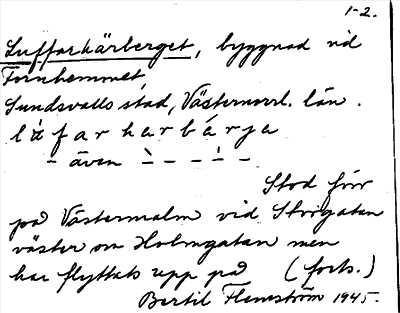 1-2.
Luffarhärberget, byggnad vid
Fornhemmet,
Sundsvalls stad, Västernorrl. län.
lùfarharbárja
- även ̀ - - ́ -
Stod förr
på Västermalm vid Storgatan
väster om Holmgatan men
har flyttats upp på (forts.)
Bertil Flemström 1945.